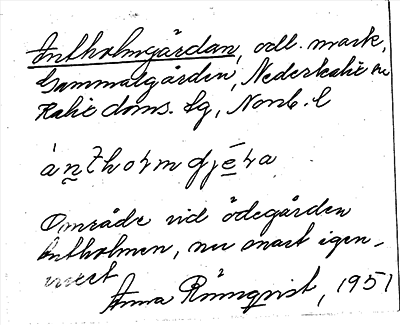 Antholmgärdan, odl. mark,
Gammalgården, Nederkalix sn
Kalix doms. sg, Norrb. l
Område vid ödegården
Antholmen, nu snart igen-
vuxet
Anna Rönnqvist, 1951